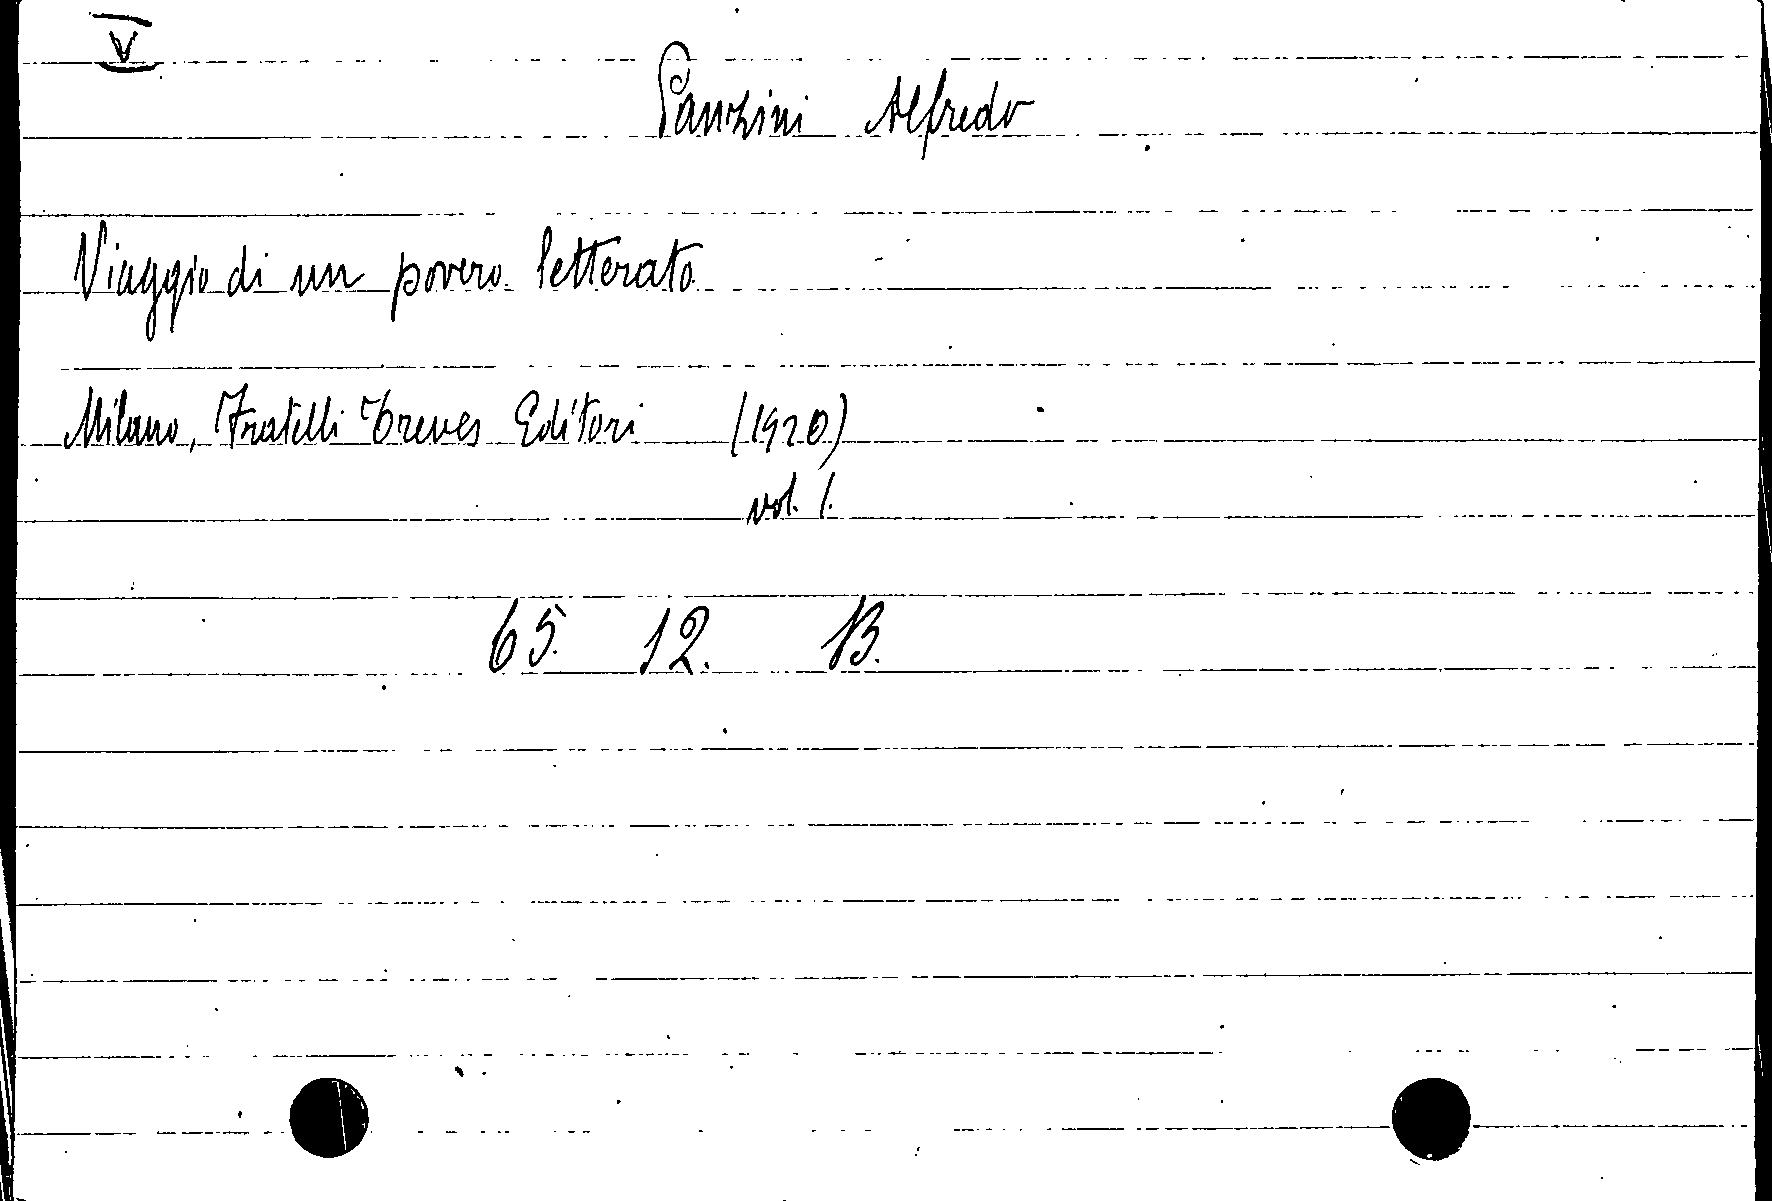 V
Panzini Alfredo
Viaggio di un povero letterato
Milano, Fratelli Treves Editori (1920)
vol. 1.
65. 12. B.